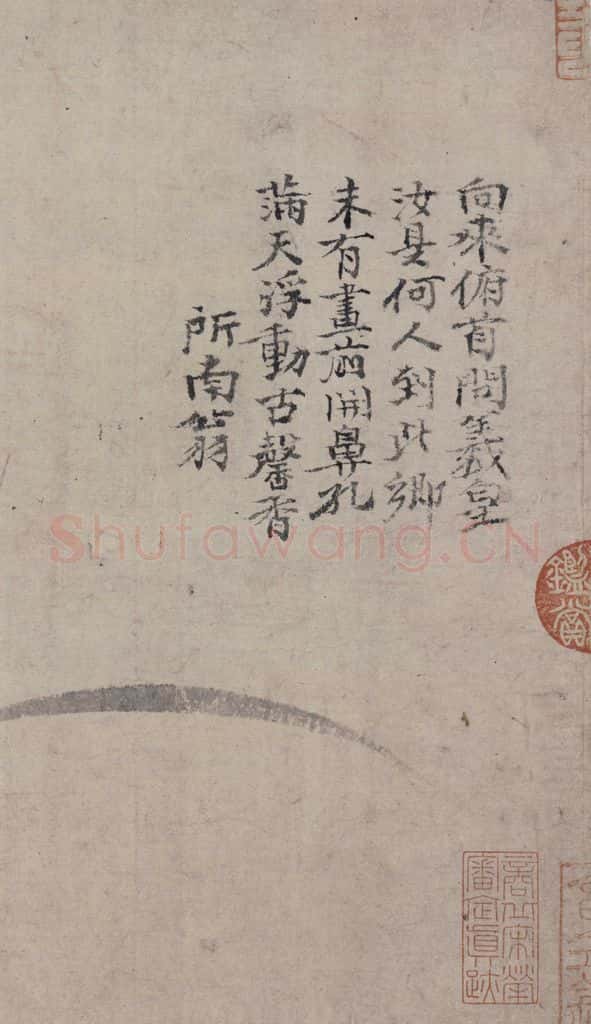 向來俯首問羲皇
汝是何人到此鄉
未有畫前開鼻孔
滿天浮動古馨香
所南翁
Shufawang.CN
鑑賞
商丘宋犖
審定真跡